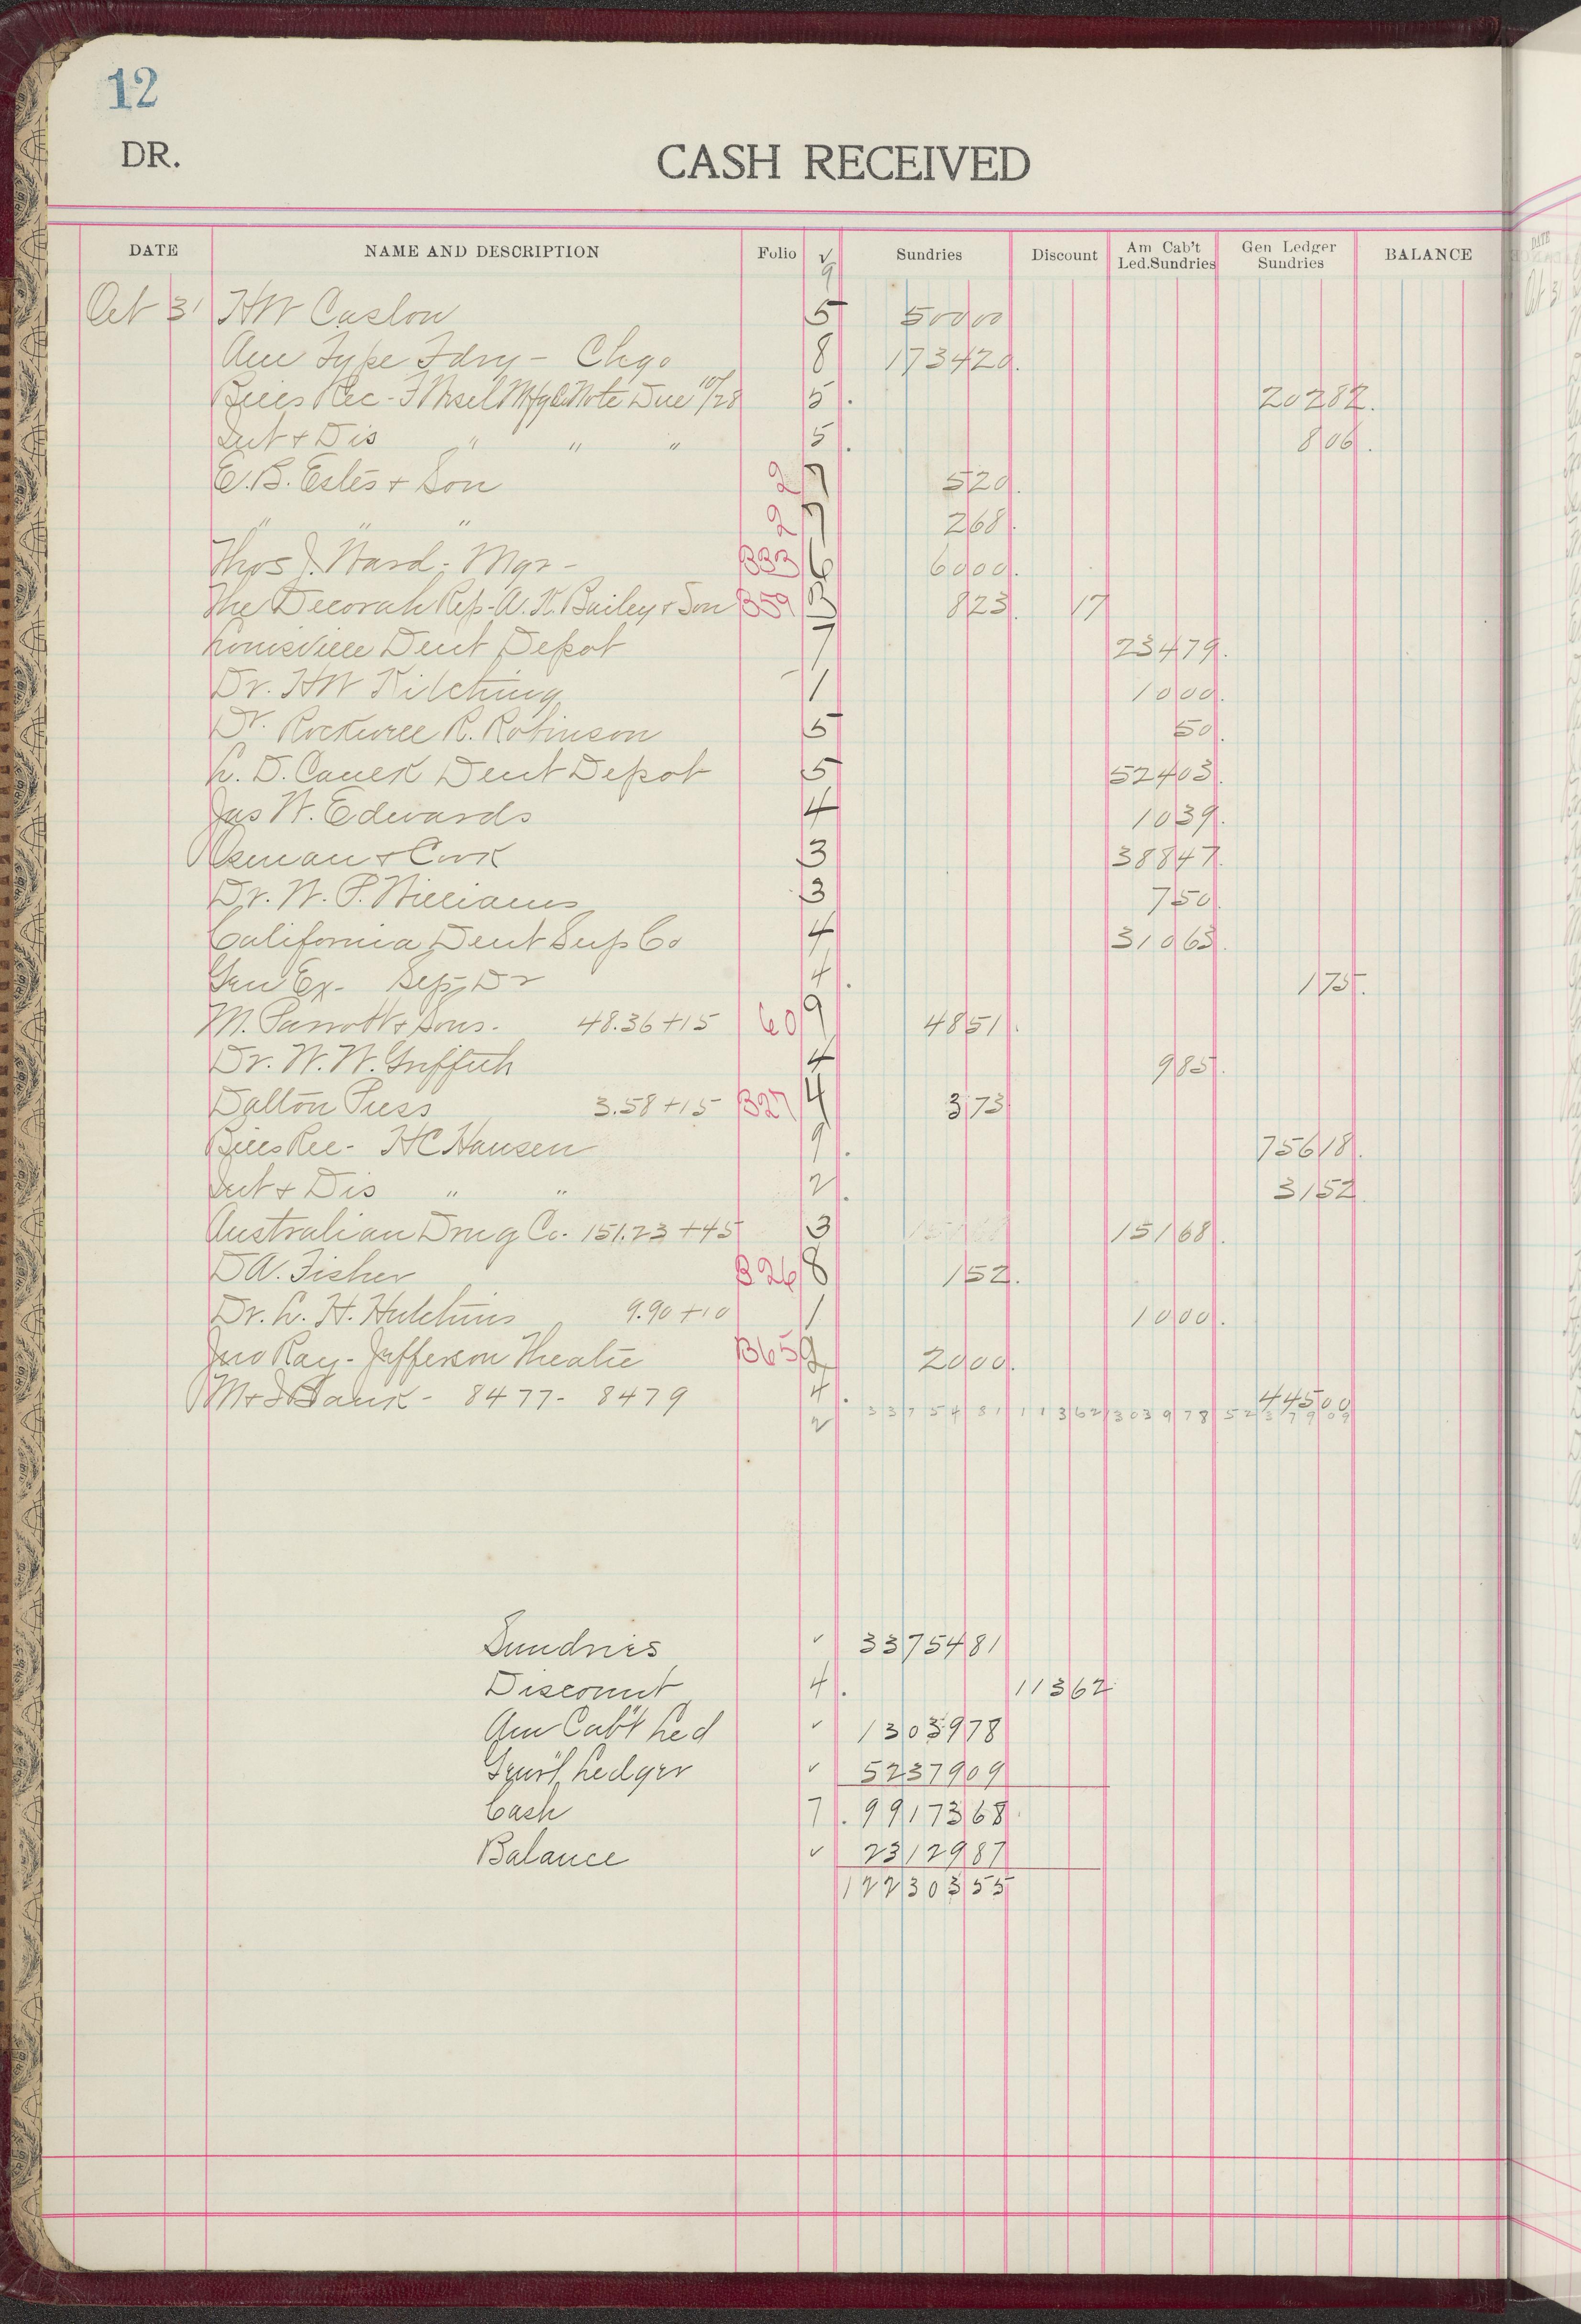 12
DR.
CASH RECEIVED
DATE NAME AND DESCRIPTION Folio √ Sundries Discount Am Cab't Led.Sundries Gen Ledger Sundries BALANCE
9
Oct 31 HW Caslon 5 50000
Am Type Fdry - Chgo 8 173420.
Bills Rec - Mfg Co Note Due 10/28 5 . 20282.
Int & Dis " " " 5 . 806.
E.B. Estes & Son 2 7 520.
" " " 2 7 268.
Thos J. Ward - Mgr - B33 6 6000.
The Decorah Rep - A. K. Bailey & Son B59 3 823. 17
Louisville Dent Depot 7 23479.
Dr. HW Kitching 1 1000.
Dr. Rockwell R. Robinson 5 50.
L. D. Caulk Dent Depot 5 52403.
Jas W. Edwards 4 1039.
& Cook 3 38847.
Dr. W. P. Williams 3 750.
California Dent Sup Co 4 31063.
Gen Ex - Dr 4 . 175.
M. Parrott & Sons. 48.36 + 15 60 9 4851.
Dr. W. W. Griffith 4 985.
Dalton Press 3.58 + 15 B27 4 373
Bills Rec - HC Hansen 9 . 75618.
Int & Dis " " 2 . 3152.
Australian Drug Co. 151.23 + 45 3 15168.
DA. Fisher B26 8 152.
Dr. L. H. Hutchins 9.90 + 10 1 1000.
Jno Ray - Jefferson Theatre B65 9 2000.
M & I Bank - 8477 - 8479 4 . 44500
2 3375481 11362 1303978 5237909
Sundries √ 3375481
Discount 4 . 11362
Am Cab't Led √ 1303978
Gen'l Ledger √ 5237909
Cash 7 . 9917368
Balance √ 2312987
12230355